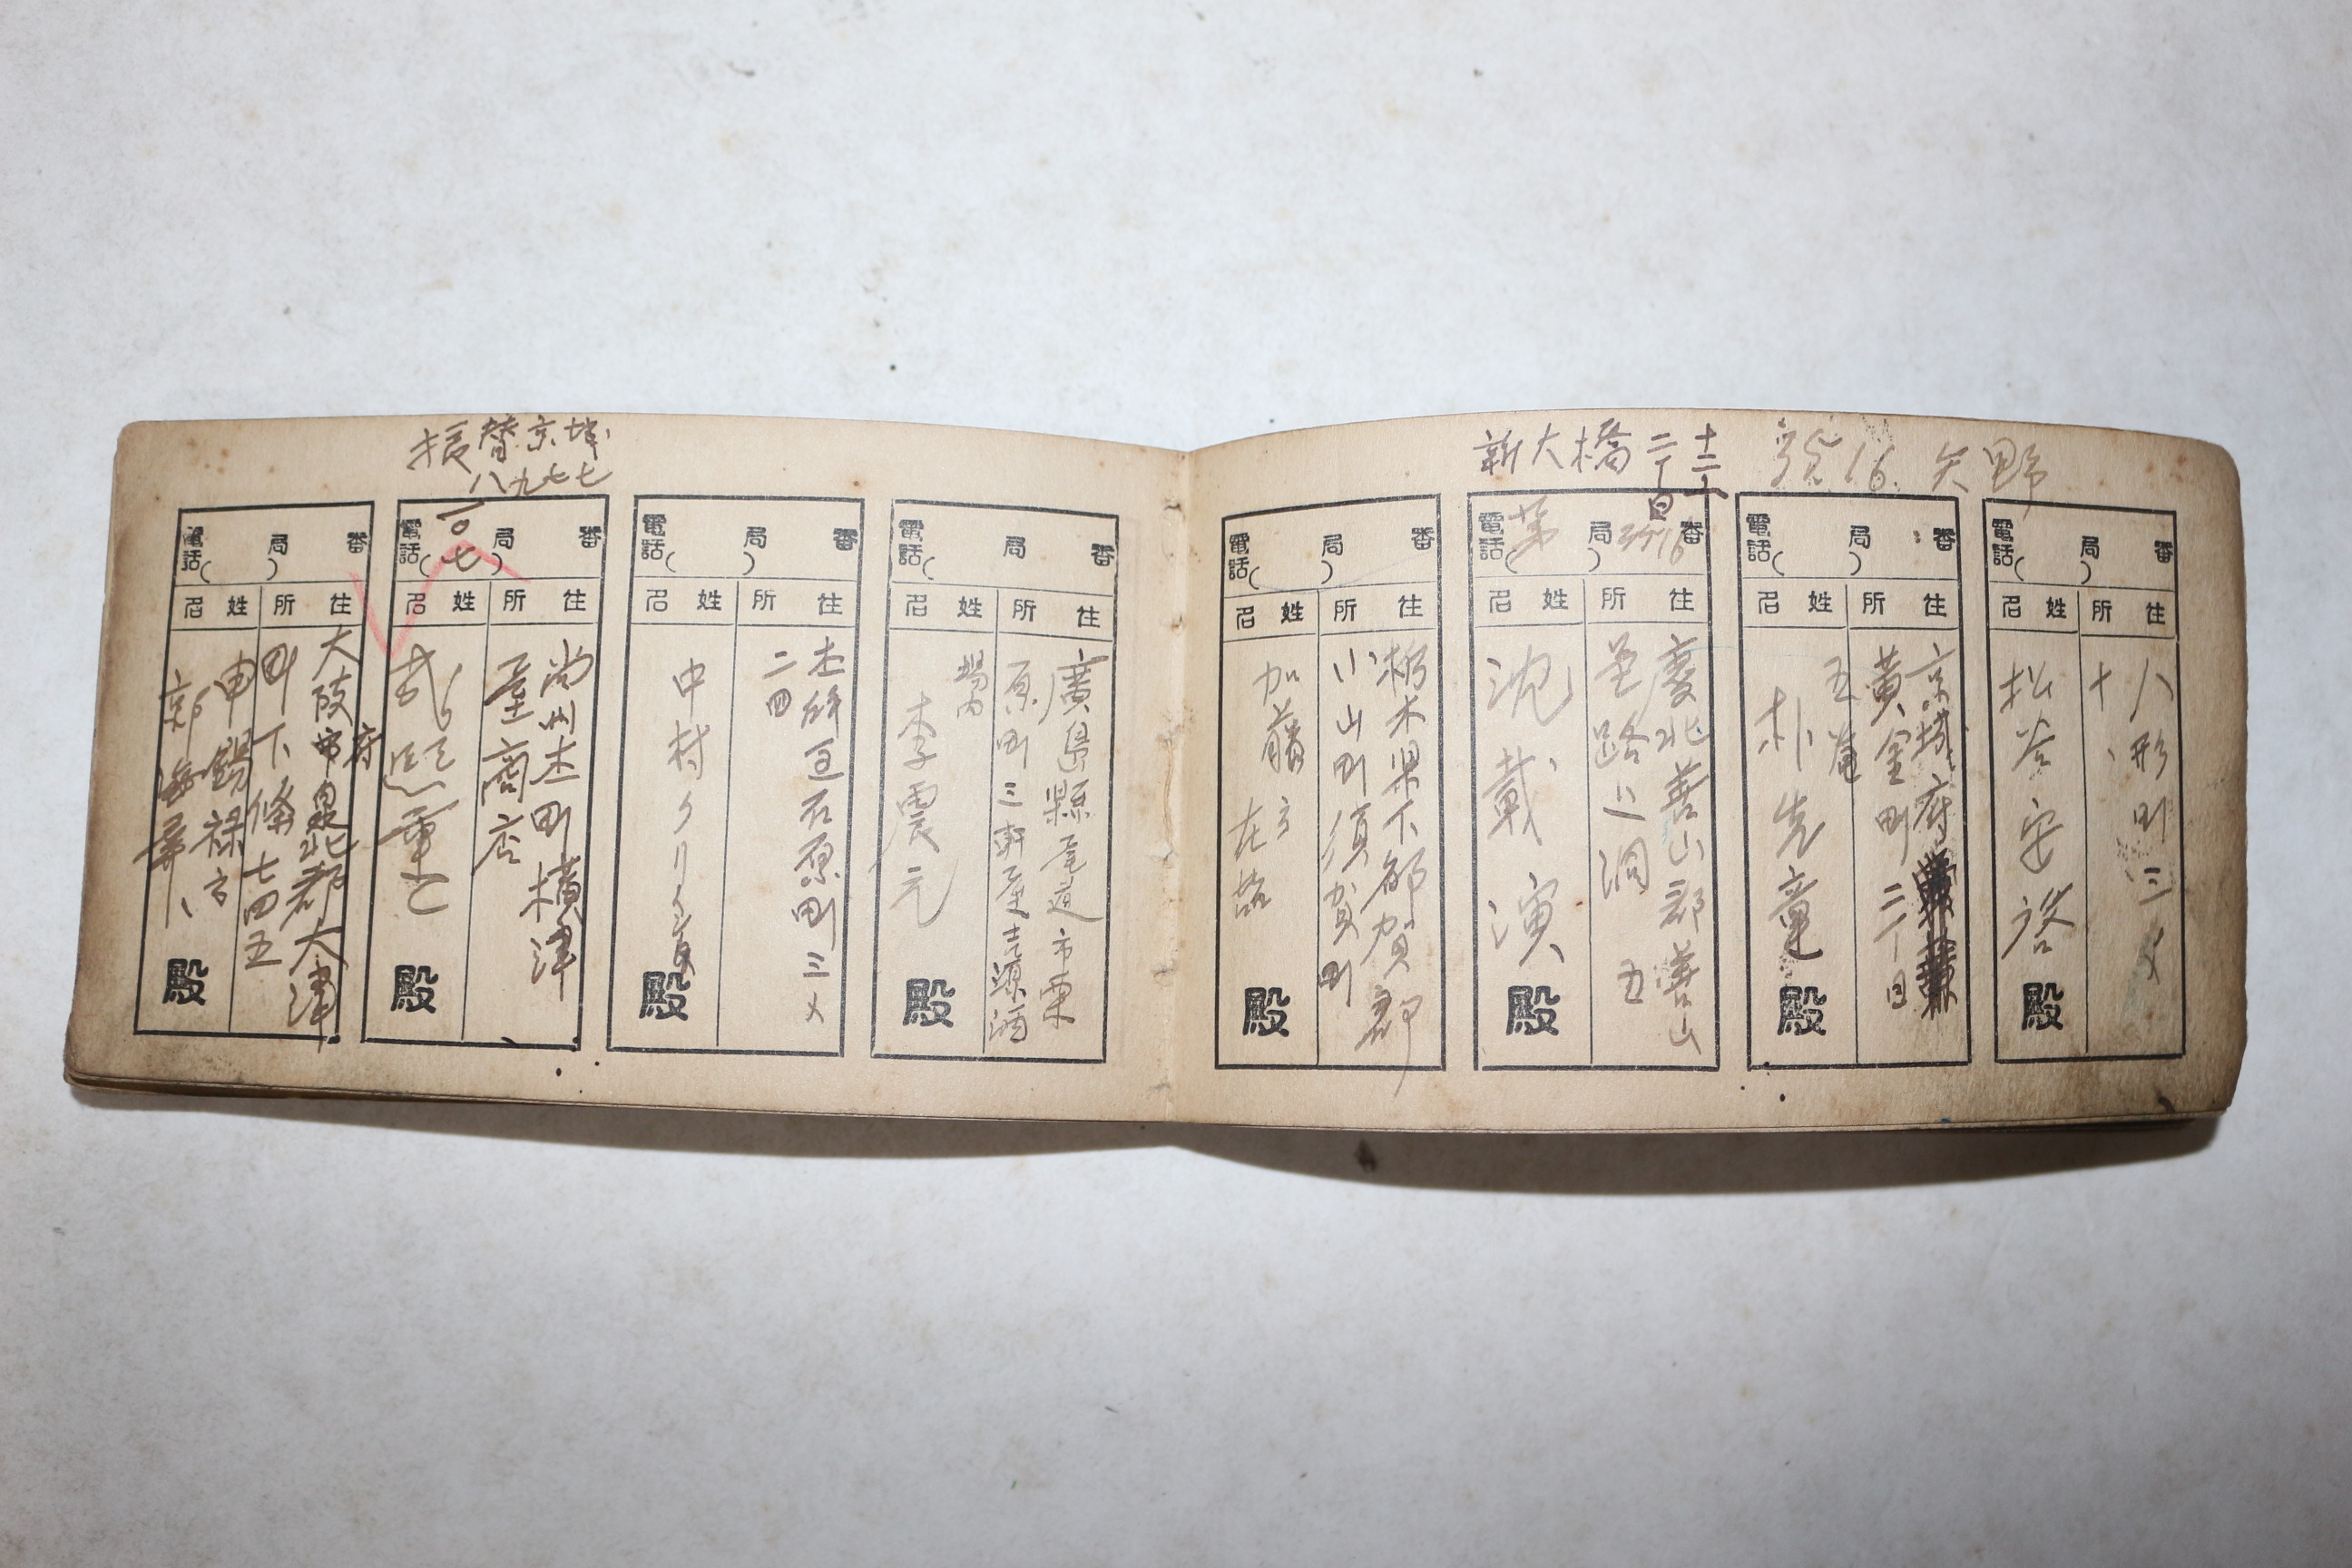 新大橋二丁目
十二ノ
號16.矢野
番
局
電話( )
住所
姓名
八形町三ノ
十、
松谷安
殿
番
局
電話( )
住所
姓名
京城府
黃金町二丁目
五
朴先童
殿
番
局
電話( )
第
住所
姓名
慶北善山郡善山
路上洞 五
沈載演
殿
番
局
電話( )
住所
姓名
栃木県下都賀郡
小山町須賀町
加藤方
殿
番
局
電話( )
住所
姓名
廣島縣尾道市栗
原町三軒屋吉源酒
場内
李震元
殿
番
局
電話( )
住所
姓名
石原町三ノ
二四
中村
殿
振替京城
八九七七
番
局
電話( )
一〇七
住所
姓名
尚州本町橫津
屋商店
殿
番
局
電話( )
住所
姓名
大阪府泉北郡大津
町下條七四五
申錫祿方
殿